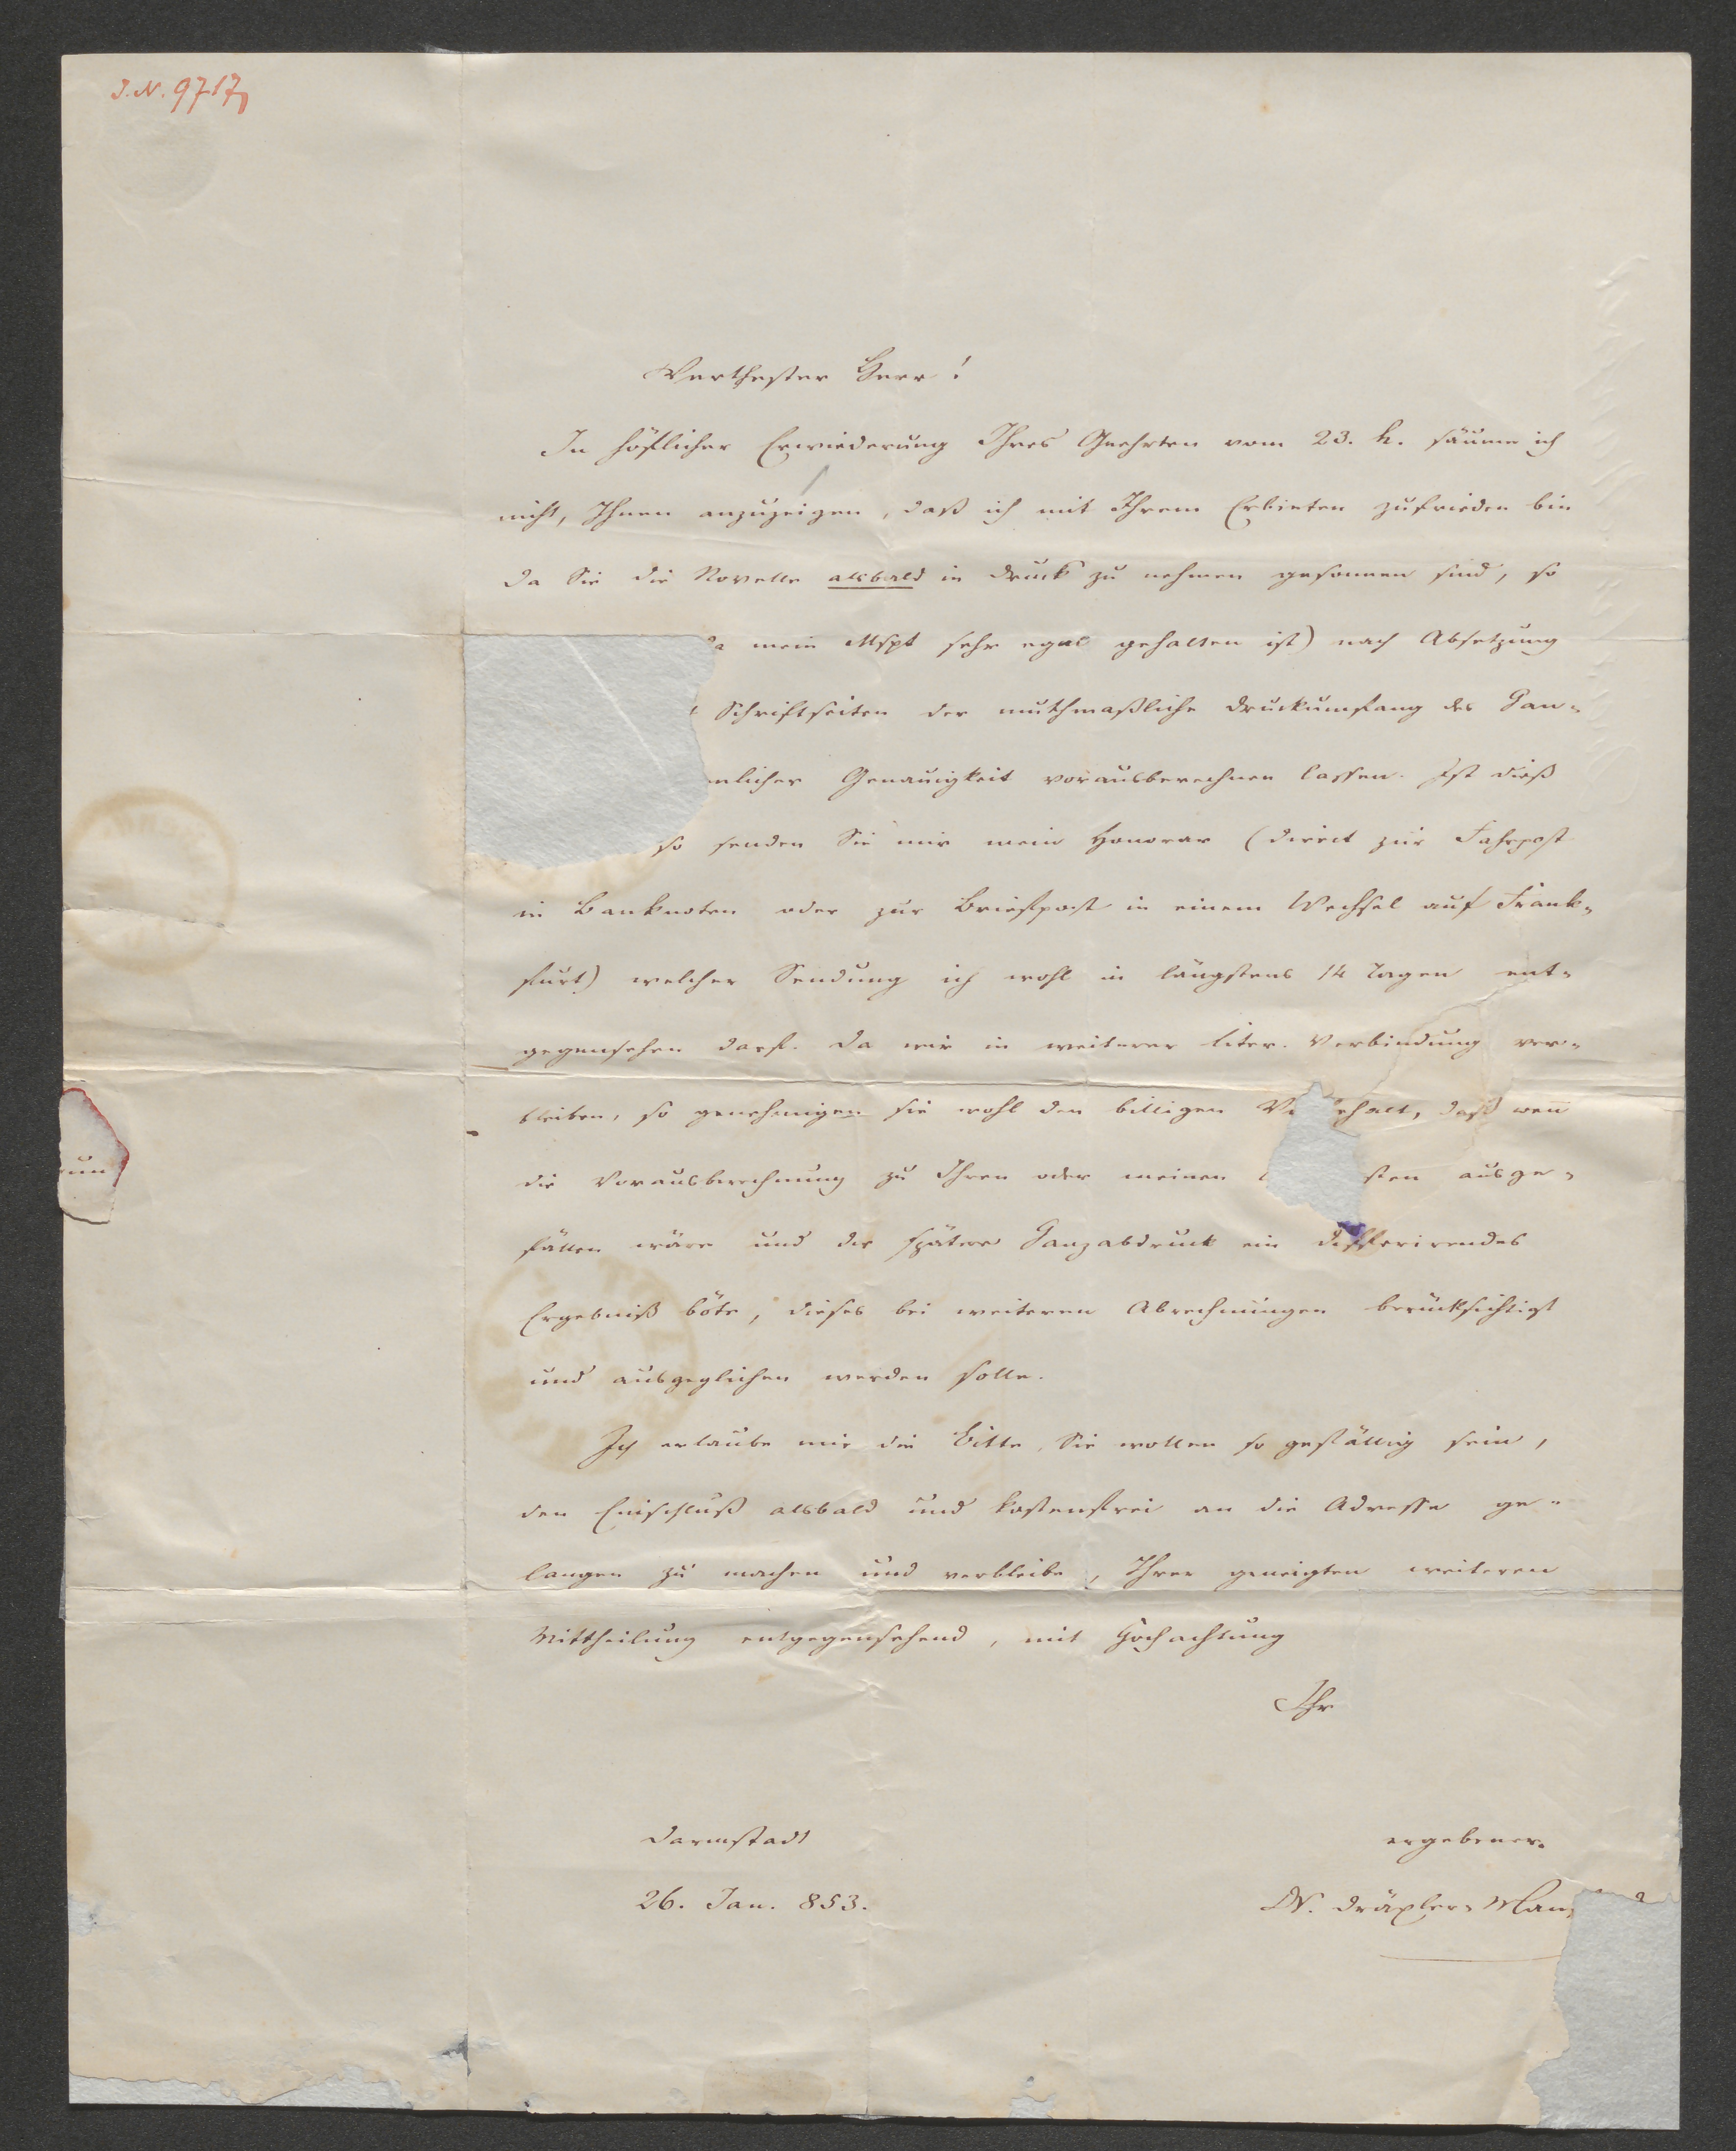 J.N. 9717
Werthester Herr!
In höflicher Erwiederung Ihres Geehrten vom 23. h. säume ich
nicht, Ihnen anzuzeigen, daß ich mit Ihrem Erbieten zufrieden bin
da Sie die Novelle alsbald in Druck zu nehmen gesonnen sind, so
mein Mspt sehr egal gehalten ist) nach Absetzung
Schriftseiten der muthmaßliche Druckumfang des Gan-
nlicher Genauigkeit vorausberechnen lassen. Ist dieß
so senden Sie mir mein Honorar (direct zur Fahrpost
in Banknoten oder zur Briefpost in einem Wechsel auf Frank-
furt) welcher Sendung ich wohl in längstens 14 Tagen ent-
gegensehen darf. Da wir in weiterer liter. Verbindung ver-
bleiben, so genehmigen sie wohl den billigen V ehalt, daß wen̄
die Vorausberechnung zu Ihren oder meinen sten ausge-
fallen wäre und der spätere Ganzabdruck ein differirendes
Ergebniß böte, dieses bei weiteren Abrechnungen berücksichtigt
und ausgeglichen werden solle.
Ich erlaube mir die Bitte, Sie wollen so gefällig sein,
den Einschluß alsbald und kostenfrei an die Adresse ge-
langen zu machen und verbleibe, Ihrer geneigten weiteren
Mittheilung entgegensehend, mit Hochachtung
Ihr
Darmstadt
ergebener.
26. Jan. 853.
Dräxler-Man